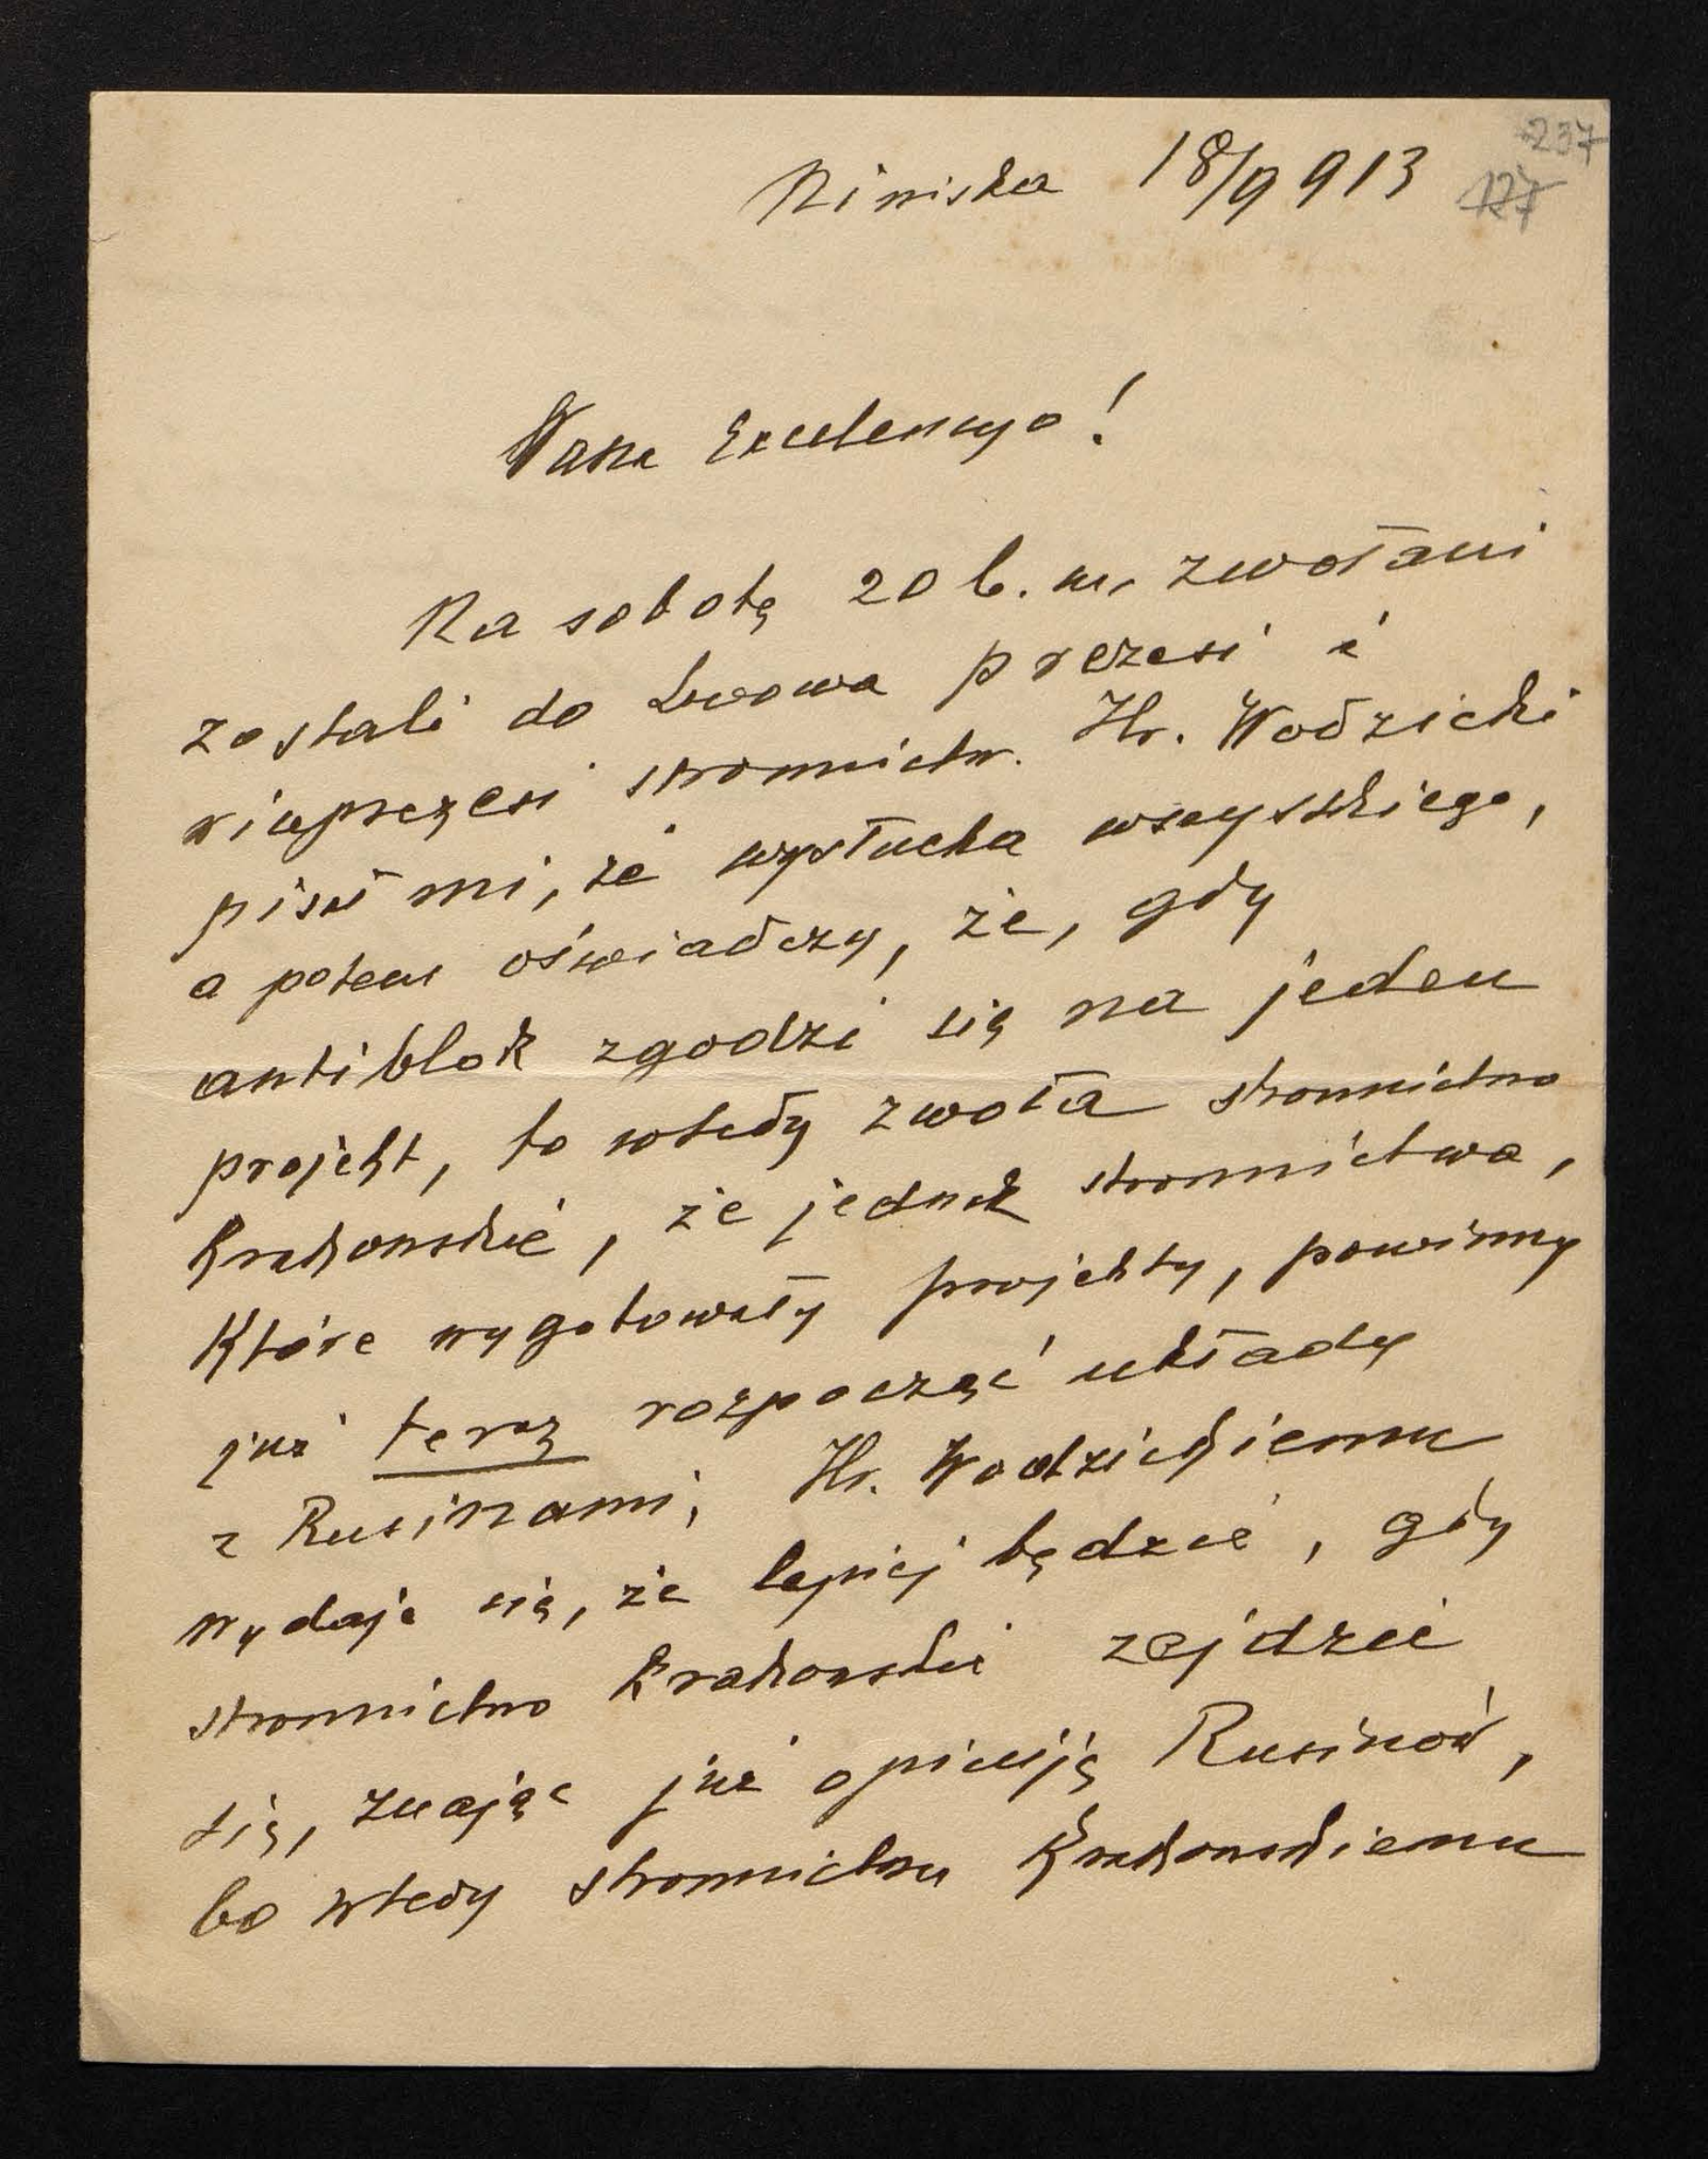 Niniska 18/9 913
237
127
Wasza Excelencyo!
Na sobotę 20 b. m. zwołani
zostali do Lwowa prezesi i
wiceprezesi stronnictw. Hr. Wodzicki
pisał mi, że wysłucha wszystkiego,
a potem oświadczy, że, gdy
antiblok zgodzi się na jeden
projekt, to wtedy zwoła stronnictwo
Krakowskie, że jednak stronnictwa,
które wygotowały projekty, powinny
już teraz rozpocząć układy
z Rusinami; Hr. Wodzickiemu
wydaje się, że lepiej będzie, gdy
stronnictwo Krakowskie zejdzie
się, znając już opiniję Rusinów,
bo wtedy stronnictwu Krakowskiemu